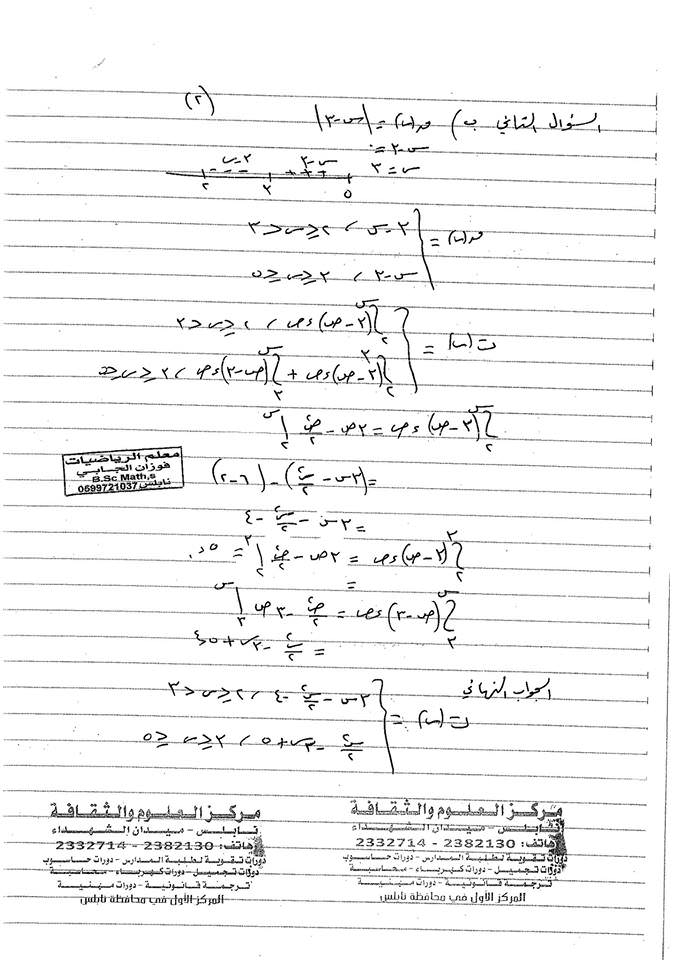 (٢)
السؤال الثاني ب) ق(س) = |س-٣|
س-٣ = ٠
س = ٣
٣-س س-٣
--- +++
٢ ٣ ٥
ق(س) = { ٣-س ، ٢ ≤ س < ٣
س-٣ ، ٣ ≤ س ≤ ٥
ت(س) = { ∫ (٣-ص) ءص ، ٢ ≤ س < ٣
∫ (٣-ص) ءص + ∫ (ص-٣) ءص ، ٣ ≤ س ≤ ٥
∫ (٣-ص) ءص = ٣ص - ص²/٢ |
= (٣س - س²/٢) - (٦-٢)
= ٣س - س²/٢ - ٤
∫ (٣-ص) ءص = ٣ص - ص²/٢ | = ٠,٥
=
∫ (ص-٣) ءص = ص²/٢ - ٣ص |
= س²/٢ - ٣س + ٤,٥
الجواب النهائي
ت(س) = { ٣س - س²/٢ - ٤ ، ٢ ≤ س < ٣
س²/٢ - ٣س + ٥ ، ٣ ≤ س ≤ ٥
معلم الرياضيات
فوزان الجابي
B.Sc Math,s
نابلس 0599721037
مركز العلوم والثقافة
نابلس - ميدان الشهداء
هاتف: 2382130 - 2332714
دورات تقوية لطلبة المدارس - دورات حاسوب
دورات تجميل - دورات كهرباء - محاسبة
ترجمة قانونية - دورات مهنية
المركز الأول في محافظة نابلس
مركز العلوم والثقافة
نابلس - ميدان الشهداء
هاتف: 2382130 - 2332714
دورات تقوية لطلبة المدارس - دورات حاسوب
دورات تجميل - دورات كهرباء - محاسبة
ترجمة قانونية - دورات مهنية
المركز الأول في محافظة نابلس